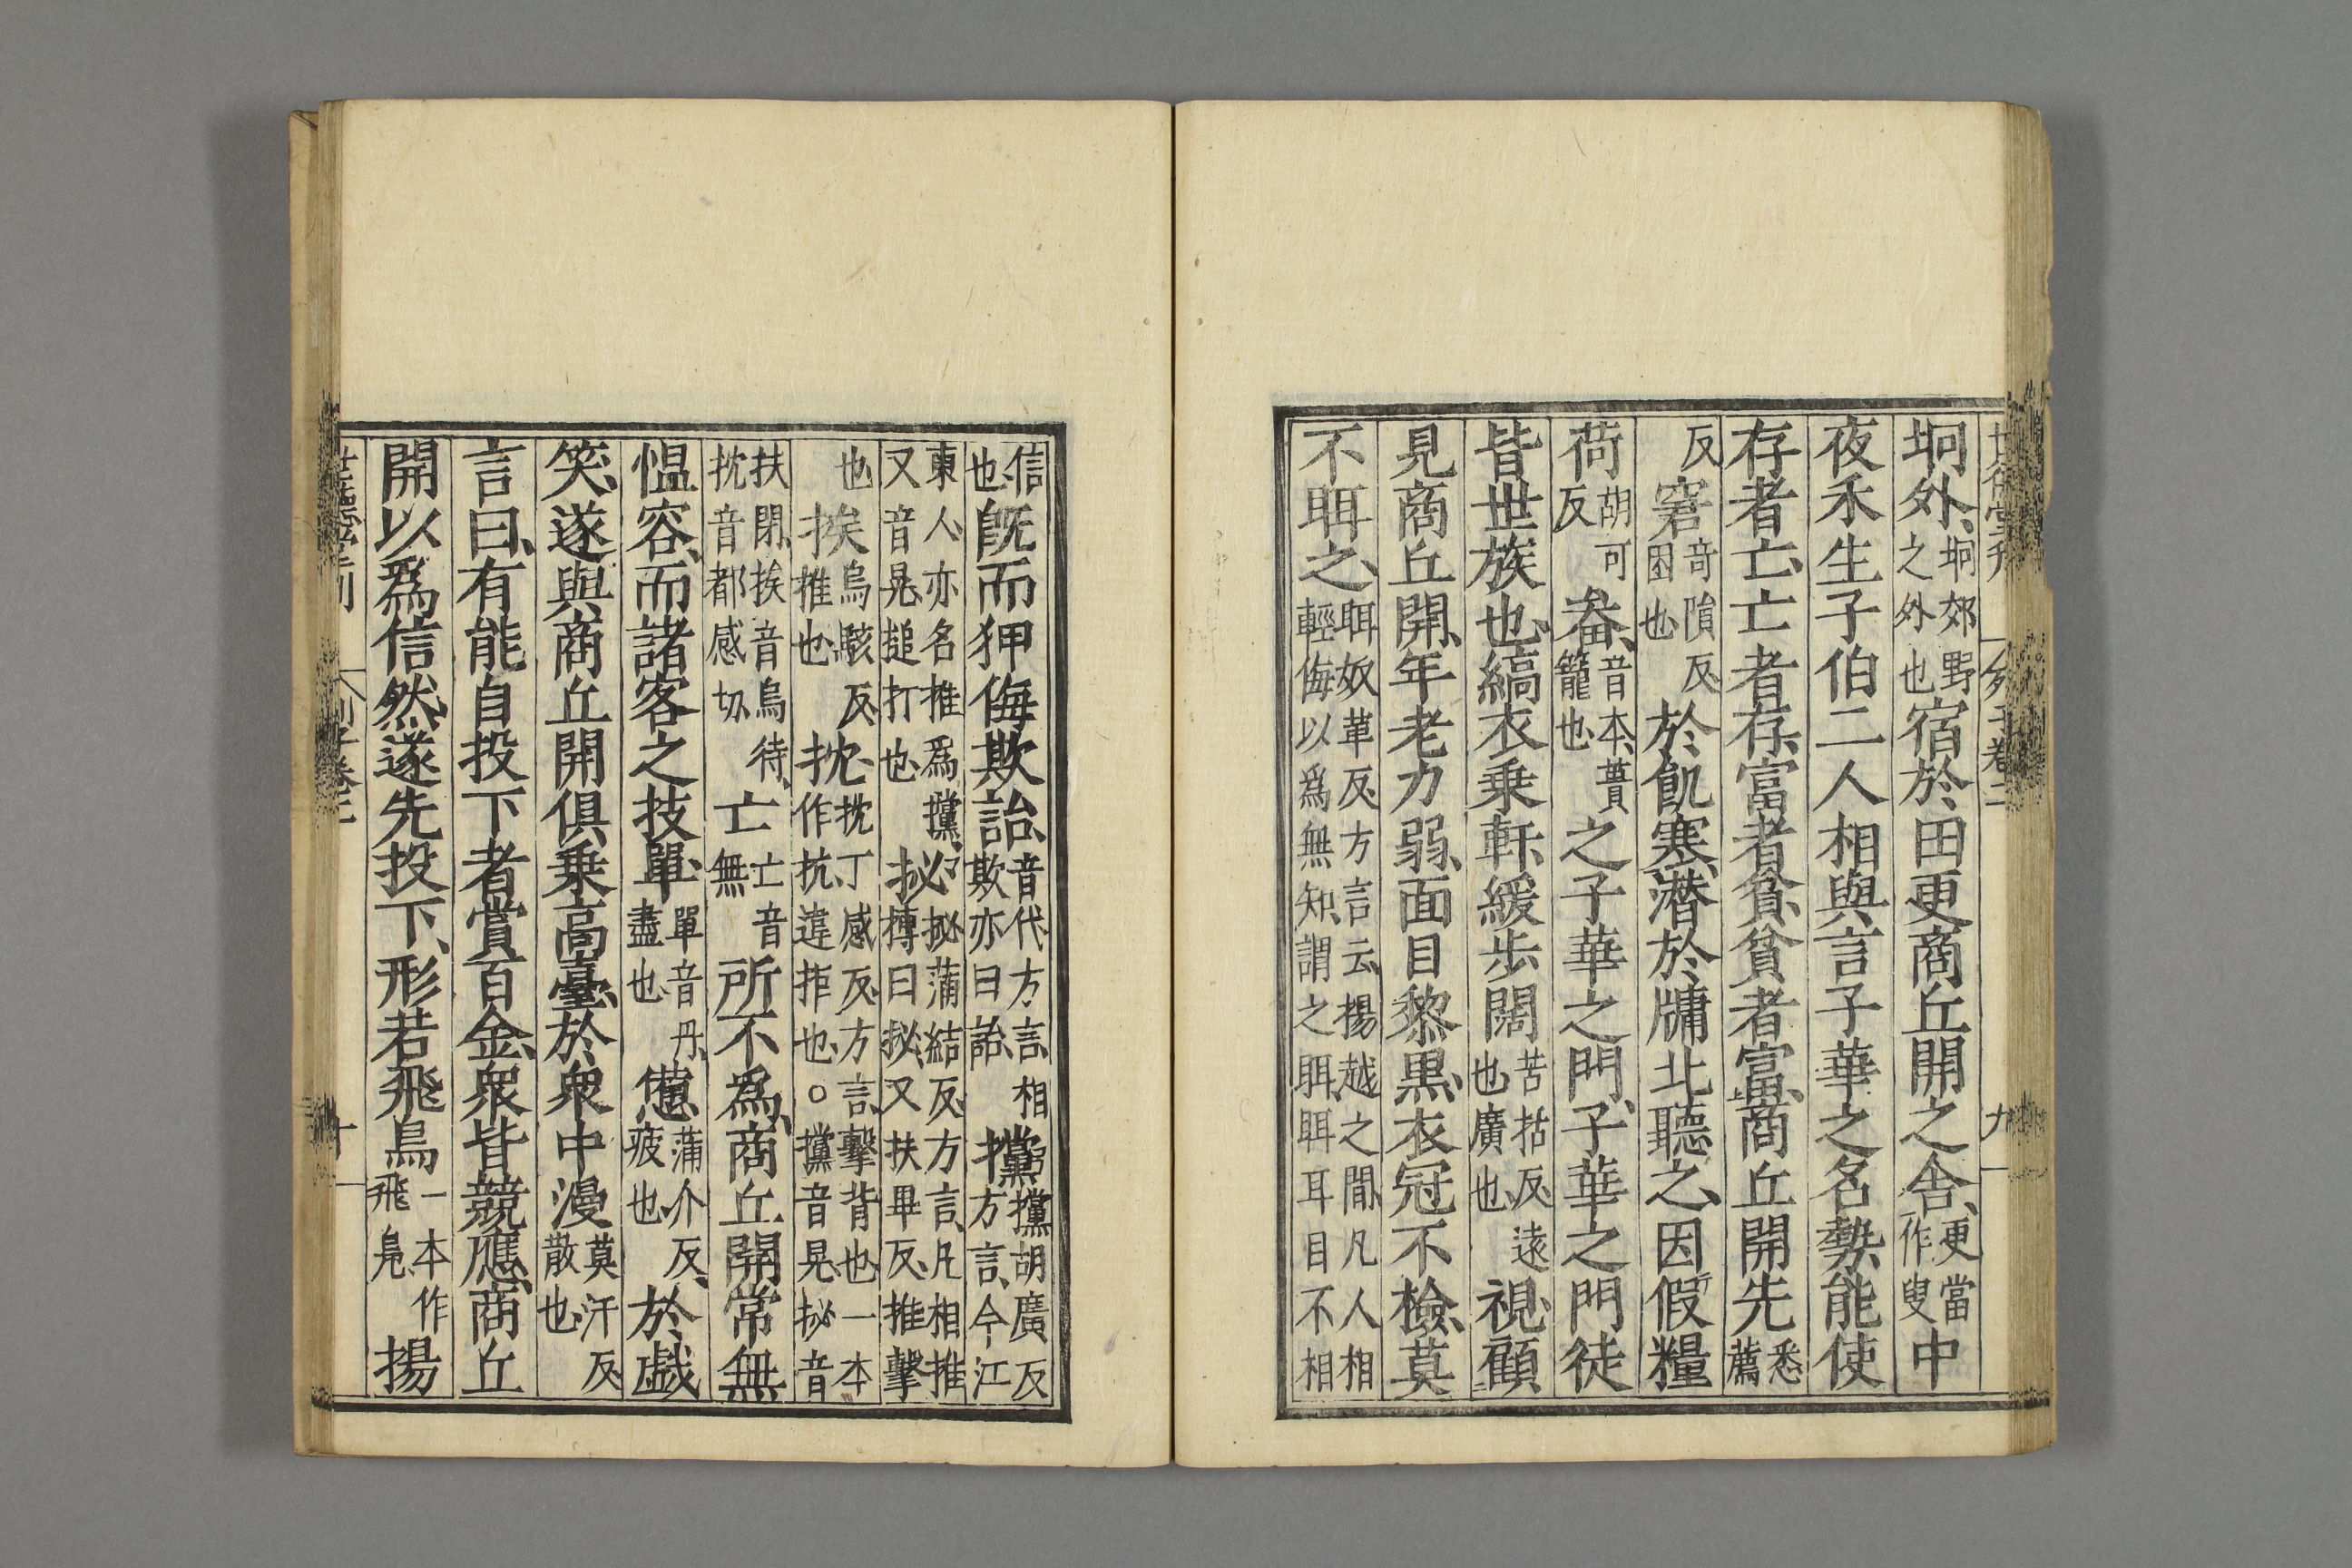 世德堂刊 列子卷二 九
坰外坰郊野之外也宿於田更商丘開之舍更當作叟中
夜禾生子伯二人相與言子華之名勢能使
存者亡亡者存富者貧貧者富商丘開先悉薦
反窘奇隕反困也於飢寒潛於牖北聽之因假糧
荷胡可反畚音本蕢籠也之子華之門子華之門徒
皆世族也縞衣乘軒緩步闊苦括反遠也廣也視顧
見商丘開年老力弱面目黎黑衣冠不檢莫
不眲之眲奴革反方言云揚越之間凡人相輕侮以爲無知謂之眲眲耳目不相
信也旣而狎侮欺詒音代方言相欺亦曰詒攩攩胡廣反方言今江
東人亦名推爲攩又音晃搥打也㧙㧙蒲結反方言凡相推摶曰㧙又扶畢反推擊
也挨烏駭反推也抌抌丁感反方言擊背也一本作抗違拒也○攩音晃㧙音
扶閉挨音烏待抌音都感切亡亡音無所不爲商丘開常無
慍容而諸客之技單單音丹盡也憊蒲介反疲也於戲
笑遂與商丘開俱乘高臺於衆中漫莫汗反散也
言曰有能自投下者賞百金衆皆競應商丘
開以爲信然遂先投下形若飛鳥一本作飛鳧揚
世德堂刊 列子卷二 十